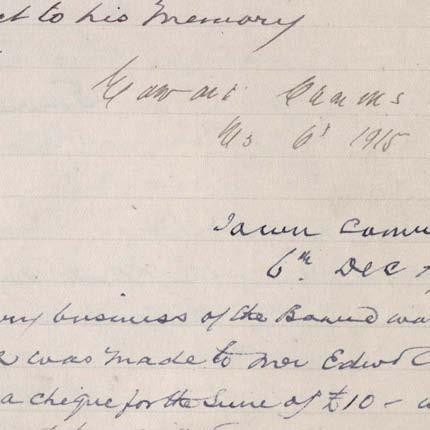 ct to his Memory
Edward
6th 1915
Town
6th Dec
business of the Board wa
was made to Mr Edwd C
a cheque for the Sum of £10 –